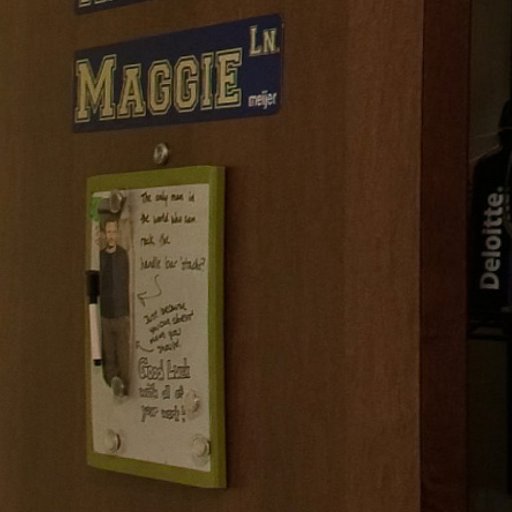 MAGGIE LN.
meijer
The only man in
the world who can
rock the
handle bar 'stache?
Just because
you can doesn't
mean you
should.
Good Luck
with all of
your work!
Deloitte.